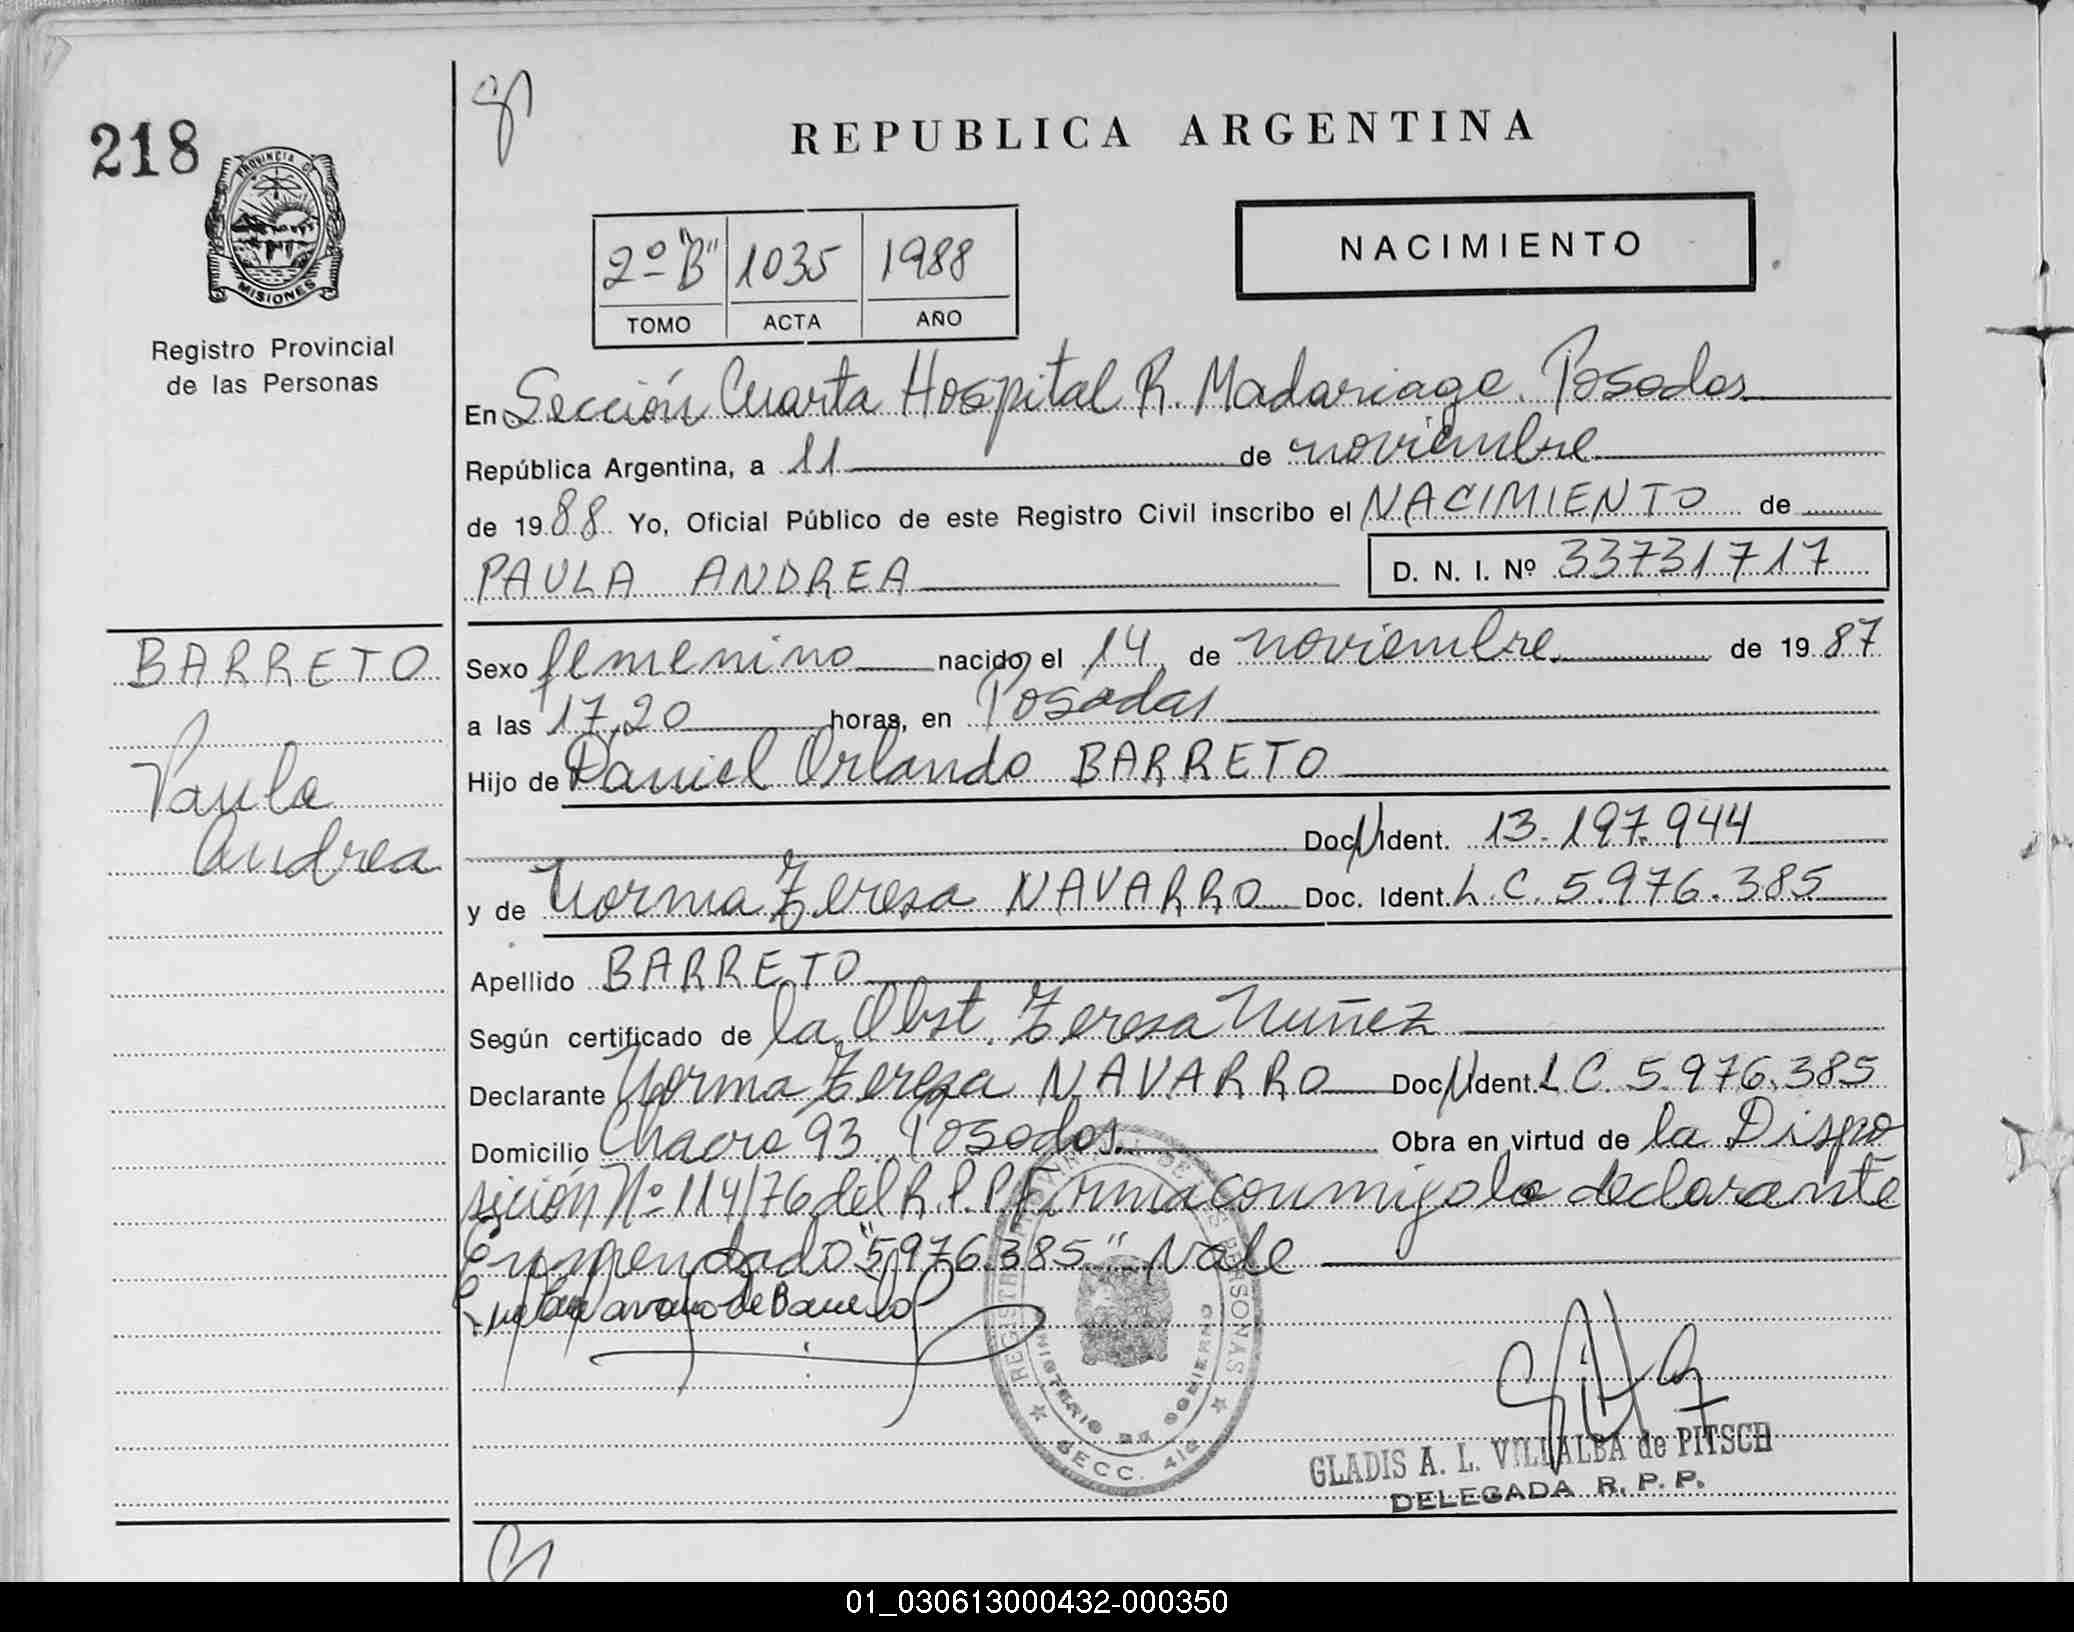 218
PROVINCIA DE
MISIONES
Registro Provincial
de las Personas
BARRETO
Paula
Andrea
REPUBLICA ARGENTINA
2º "B" 1035 1988
TOMO ACTA AÑO
NACIMIENTO
En Sección Cuarta Hospital R. Madariaga. Posadas
República Argentina, a 11 de noviembre
de 1988 Yo, Oficial Público de este Registro Civil inscribo el NACIMIENTO de
PAULA ANDREA D. N. I. Nº 33731717
Sexo femenino nacido el 14 de noviembre de 1987
a las 17,20 horas, en Posadas
Hijo de Daniel Orlando BARRETO
Doc. Ident. 13.197.944
y de Norma Teresa NAVARRO Doc. Ident. L.C. 5.976.385
Apellido BARRETO
Según certificado de la Obst. Teresa Nuñez
Declarante Norma Teresa NAVARRO Doc. Ident. L C 5.976.385
Domicilio Chacra 93 Posadas. Obra en virtud de la Dispo
sición Nº 114/76 del R.P.P. Firma conmigo la declarante
Enmendado "5976.385" Vale
Navarro de Barreto
REGISTRO PROVINCIAL DE LAS PERSONAS
MINISTERIO DE GOBIERNO
SECC. 4ta
GLADIS A. L. VILLALBA de PITSCH
DELEGADA R. P. P.
01_030613000432-000350